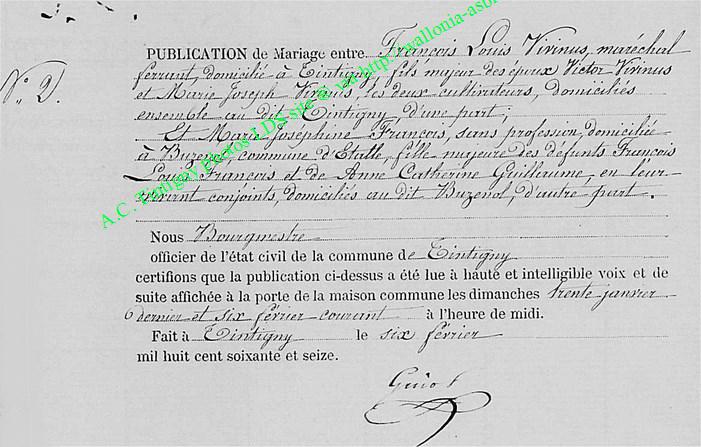 PUBLICATION de Mariage entre François Louis Virinus, maréchal
N.º 2.
ferrant, domicilié à Tintigny, fils majeur des époux Victor Virinus
et Marie Joseph Virinus, les deux cultivateurs, domiciliés
ensemble au dit Tintigny, d'une part;
Et Marie Joséphine François, sans profession, domiciliée
à Buzenol, commune d'Etalle, fille majeure des défunts François
Louis François et de Anne Catherine Guillaume, en leur
vivant conjoints, domiciliés au dit Buzenol, d'autre part.
Nous Bourgmestre
officier de l'état civil de la commune de Tintigny
certifions que la publication ci-dessus a été lue à haute et intelligible voix et de
suite affichée à la porte de la maison commune les dimanches trente janvier
dernier et six février courant à l'heure de midi.
Fait à Tintigny le six février
mil huit cent soixante et seize.
Guiot
A.C. Tintigny photos LDS site @ via http://wallonia-asb